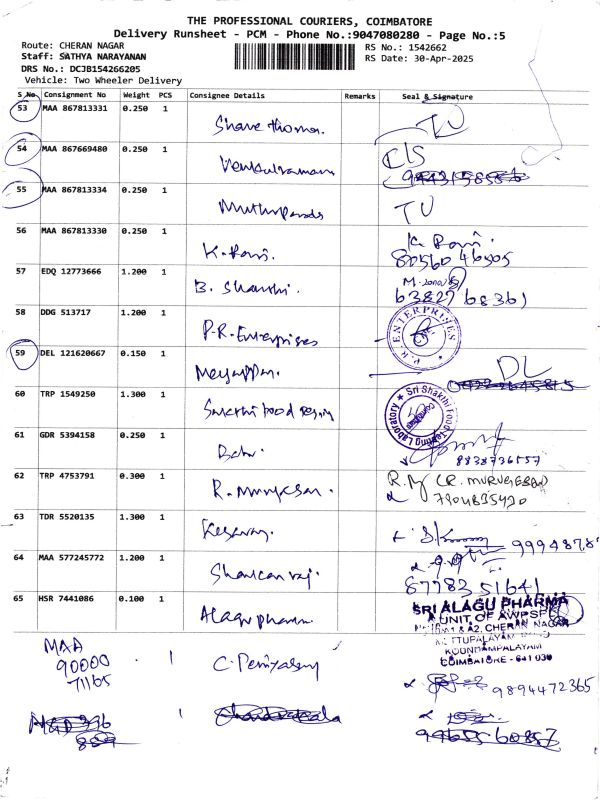 THE PROFESSIONAL COURIERS, COIMBATORE
Delivery Runsheet - PCM - Phone No.:9047080280 - Page No.:5
Route: CHERAN NAGAR
RS No.: 1542662
Staff: SATHYA NARAYANAN
RS Date: 30-Apr-2025
DRS No.: DCJB154266205
Vehicle: Two Wheeler Delivery
S No Consignment No Weight PCS Consignee Details Remarks Seal & Signature
53 MAA 867813331 0.250 1 TU
54 MAA 867669480 0.250 1
55 MAA 867813334 0.250 1 TU
56 MAA 867813330 0.250 1 K. Rani K. Rani.
80560 46505
57 EDQ 12773666 1.200 1 B. Shanthi.
63827 68361
58 DDG 513717 1.200 1 P.R. Enterprises P.R. ENTERPRISES
59 DEL 121620667 0.150 1 Meyappan. DL
60 TRP 1549250 1.300 1 Sri Shakthi Food Testing Laboratory
61 GDR 5394158 0.250 1 Babu.
8838736557
62 TRP 4753791 0.300 1 R. Murugesan. R.M (R. MURUGESAN)
7904835430
63 TDR 5520135 1.300 1 Kesavan. 9994878
64 MAA 577245772 1.200 1 Shankar raj.
87783 51641
65 HSR 7441086 0.100 1 Alagu pharm. SRI ALAGU PHARMA
A UNIT OF AWPSPL
& A2, CHERAN NAGAR
KOUNDAMPALAYAM
COIMBATORE - 641 030
MAA
90000
71165
1 C. Periyasamy
9894472365
1
99655 60857